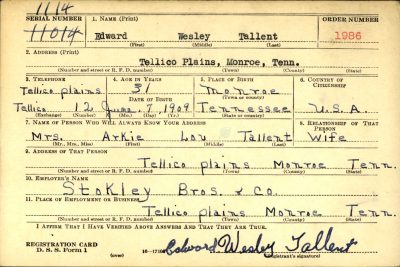 1114
SERIAL NUMBER 1. NAME (Print) ORDER NUMBER
11014 Edward Wesley Tallent 1986
(First) (Middle) (Last)
2. ADDRESS (Print)
Tellico Plains, Monroe, Tenn.
(Number and street or R. F. D. number) (Town) (County) (State)
3. TELEPHONE 4. AGE IN YEARS 5. PLACE OF BIRTH 6. COUNTRY OF CITIZENSHIP
Tellico plains 31 Monroe
DATE OF BIRTH (Town or county)
Tellico 12 7 1909 Tennessee U.S.A.
(Exchange) (Number) (Mo.) (Day) (Yr.) (State or country)
7. NAME OF PERSON WHO WILL ALWAYS KNOW YOUR ADDRESS 8. RELATIONSHIP OF THAT PERSON
Mrs. Arkie Lou Tallent Wife
(Mr., Mrs., Miss) (First) (Middle) (Last)
9. ADDRESS OF THAT PERSON
Tellico plains Monroe Tenn.
(Number and street or R. F. D. number) (Town) (County) (State)
10. EMPLOYER'S NAME
Stokley Bros. & Co.
11. PLACE OF EMPLOYMENT OR BUSINESS
Tellico plains Monroe Tenn.
(Number and street or R. F. D. number) (Town) (County) (State)
I AFFIRM THAT I HAVE VERIFIED ABOVE ANSWERS AND THAT THEY ARE TRUE.
REGISTRATION CARD
D. S. S. Form 1 (over) Edward Wesley Tallent
(Registrant's signature)